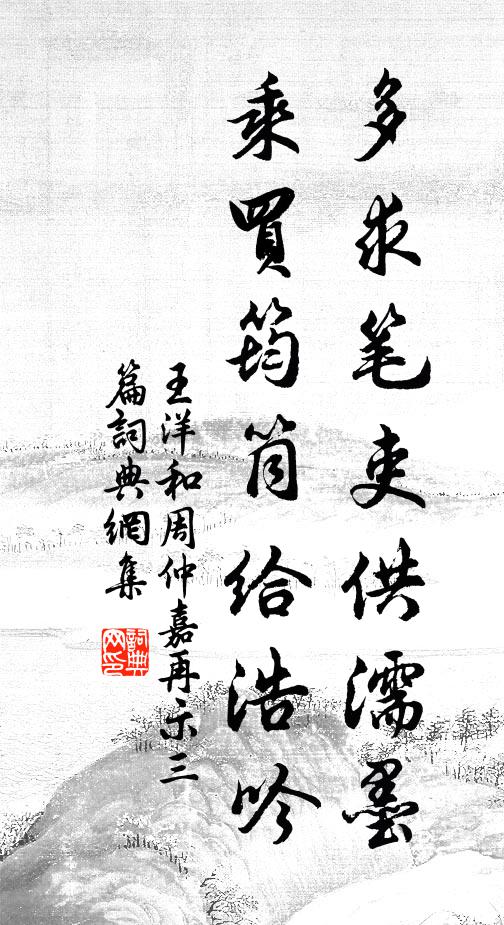 多求笔吏供濡墨
乘買筠筒給浩吟
王洋和周仲嘉再示三
篇詞典網集
詞典网印